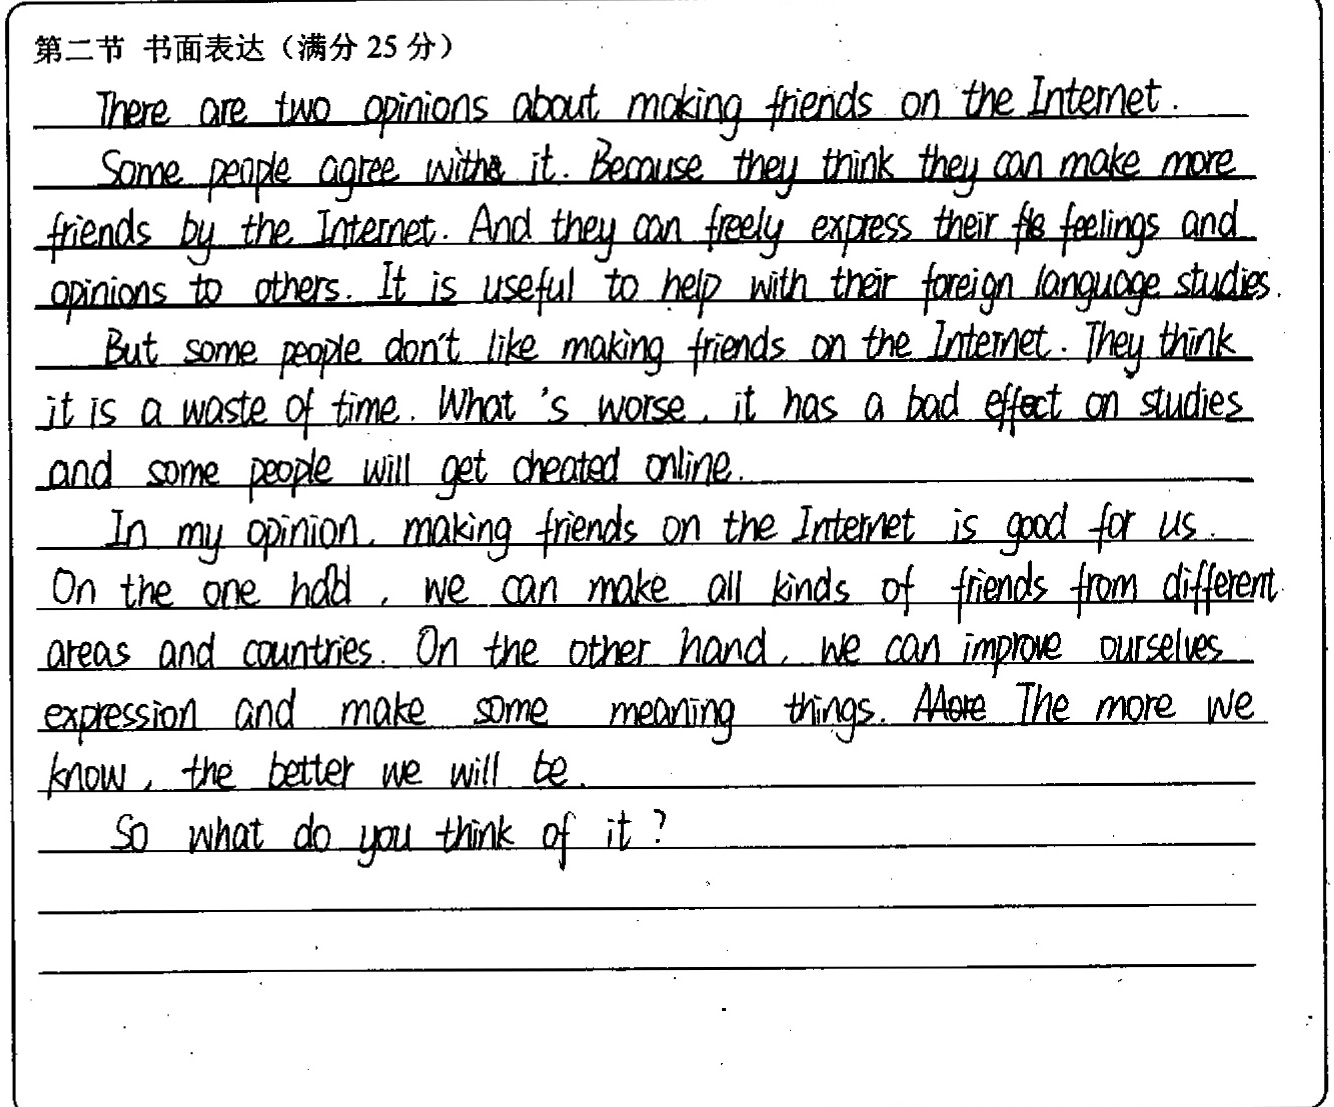 第二节 书面表达（满分 25 分）
There are two opinions about making friends on the Internet.
Some people agree with it. Because they think they can make more
friends by the Internet. And they can freely express their feelings and
opinions to others. It is useful to help with their foreign language studies.
But some people don't like making friends on the Internet. They think
it is a waste of time. What's worse, it has a bad effect on studies
and some people will get cheated online.
In my opinion, making friends on the Internet is good for us.
On the one hand, we can make all kinds of friends from different
areas and countries. On the other hand, we can improve ourselves
expression and make some meaning things. The more we
know, the better we will be.
So what do you think of it?